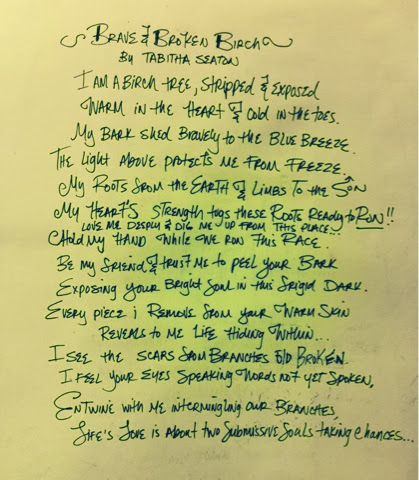 BRAVE & BROKEN BIRCH
BY TABITHA SEATON
I AM A BIRCH TREE, STRIPPED & EXPOSED
WARM IN THE HEART & COLD IN THE TOES.
MY BARK SHED BRAVELY TO THE BLUE BREEZE.
THE LIGHT ABOVE PROTECTS ME FROM FREEZE.
MY ROOTS FROM THE EARTH & LIMBS TO THE SUN
MY HEART'S STRENGTH TUGS THESE ROOTS READY TO RUN!!
LOVE ME DEEPLY & DIG ME UP FROM THIS PLACE..
HOLD MY HAND WHILE WE RUN THIS RACE.
BE MY FRIEND & TRUST ME TO PEEL YOUR BARK
EXPOSING YOUR BRIGHT SOUL IN THIS FRIGID DARK.
EVERY PIECE i REMOVE FROM YOUR WARM SKIN
REVEALS TO ME LIFE HIDING WITHIN...
I SEE THE SCARS FROM BRANCHES OLD BROKEN.
I FEEL YOUR EYES SPEAKING WORDS NOT YET SPOKEN,
ENTWINE WITH ME INTERMINGLING OUR BRANCHES,
LIFE'S LOVE IS ABOUT TWO SUBMISSIVE SOULS TAKING CHANCES...